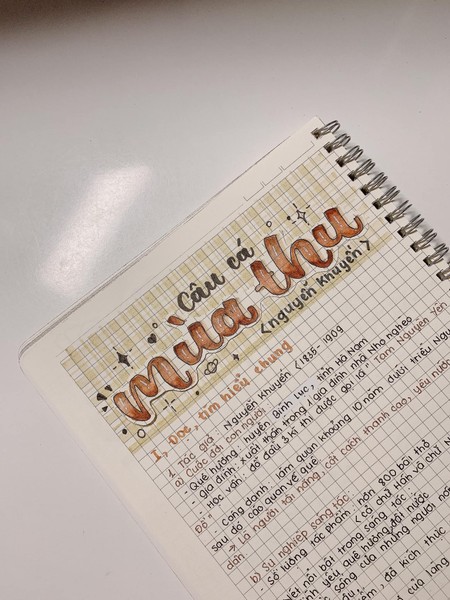 Câu cá
mùa thu
<nguyễn khuyến>
I, Đọc, tìm hiểu chung
1. Tác giả: Nguyễn Khuyến <1835-1909
a) Cuộc đời, con người
- Quê hương: huyện Bình Lục, tỉnh Hà Nam
- gia đình: xuất thân trong 1 gia đình nhà Nho nghèo
- Học vấn: đỗ đầu 3 kì thi được gọi là "Tam Nguyên Yên
Đổ"
- Công danh: làm quan khoảng 10 năm dưới triều Nguy
sau đó cáo quan về quê
→ Là người tài năng, cốt cách thanh cao, yêu nước
dân
b) Sự nghiệp sáng tác
- Số lượng tác phẩm: hơn 800 bài thơ
<cả chữ Hán và chữ N
Nét nổi bật trong sáng tác
tình yêu quê hương đất nước
sống của những người nôn
, đả kích thực
của làng